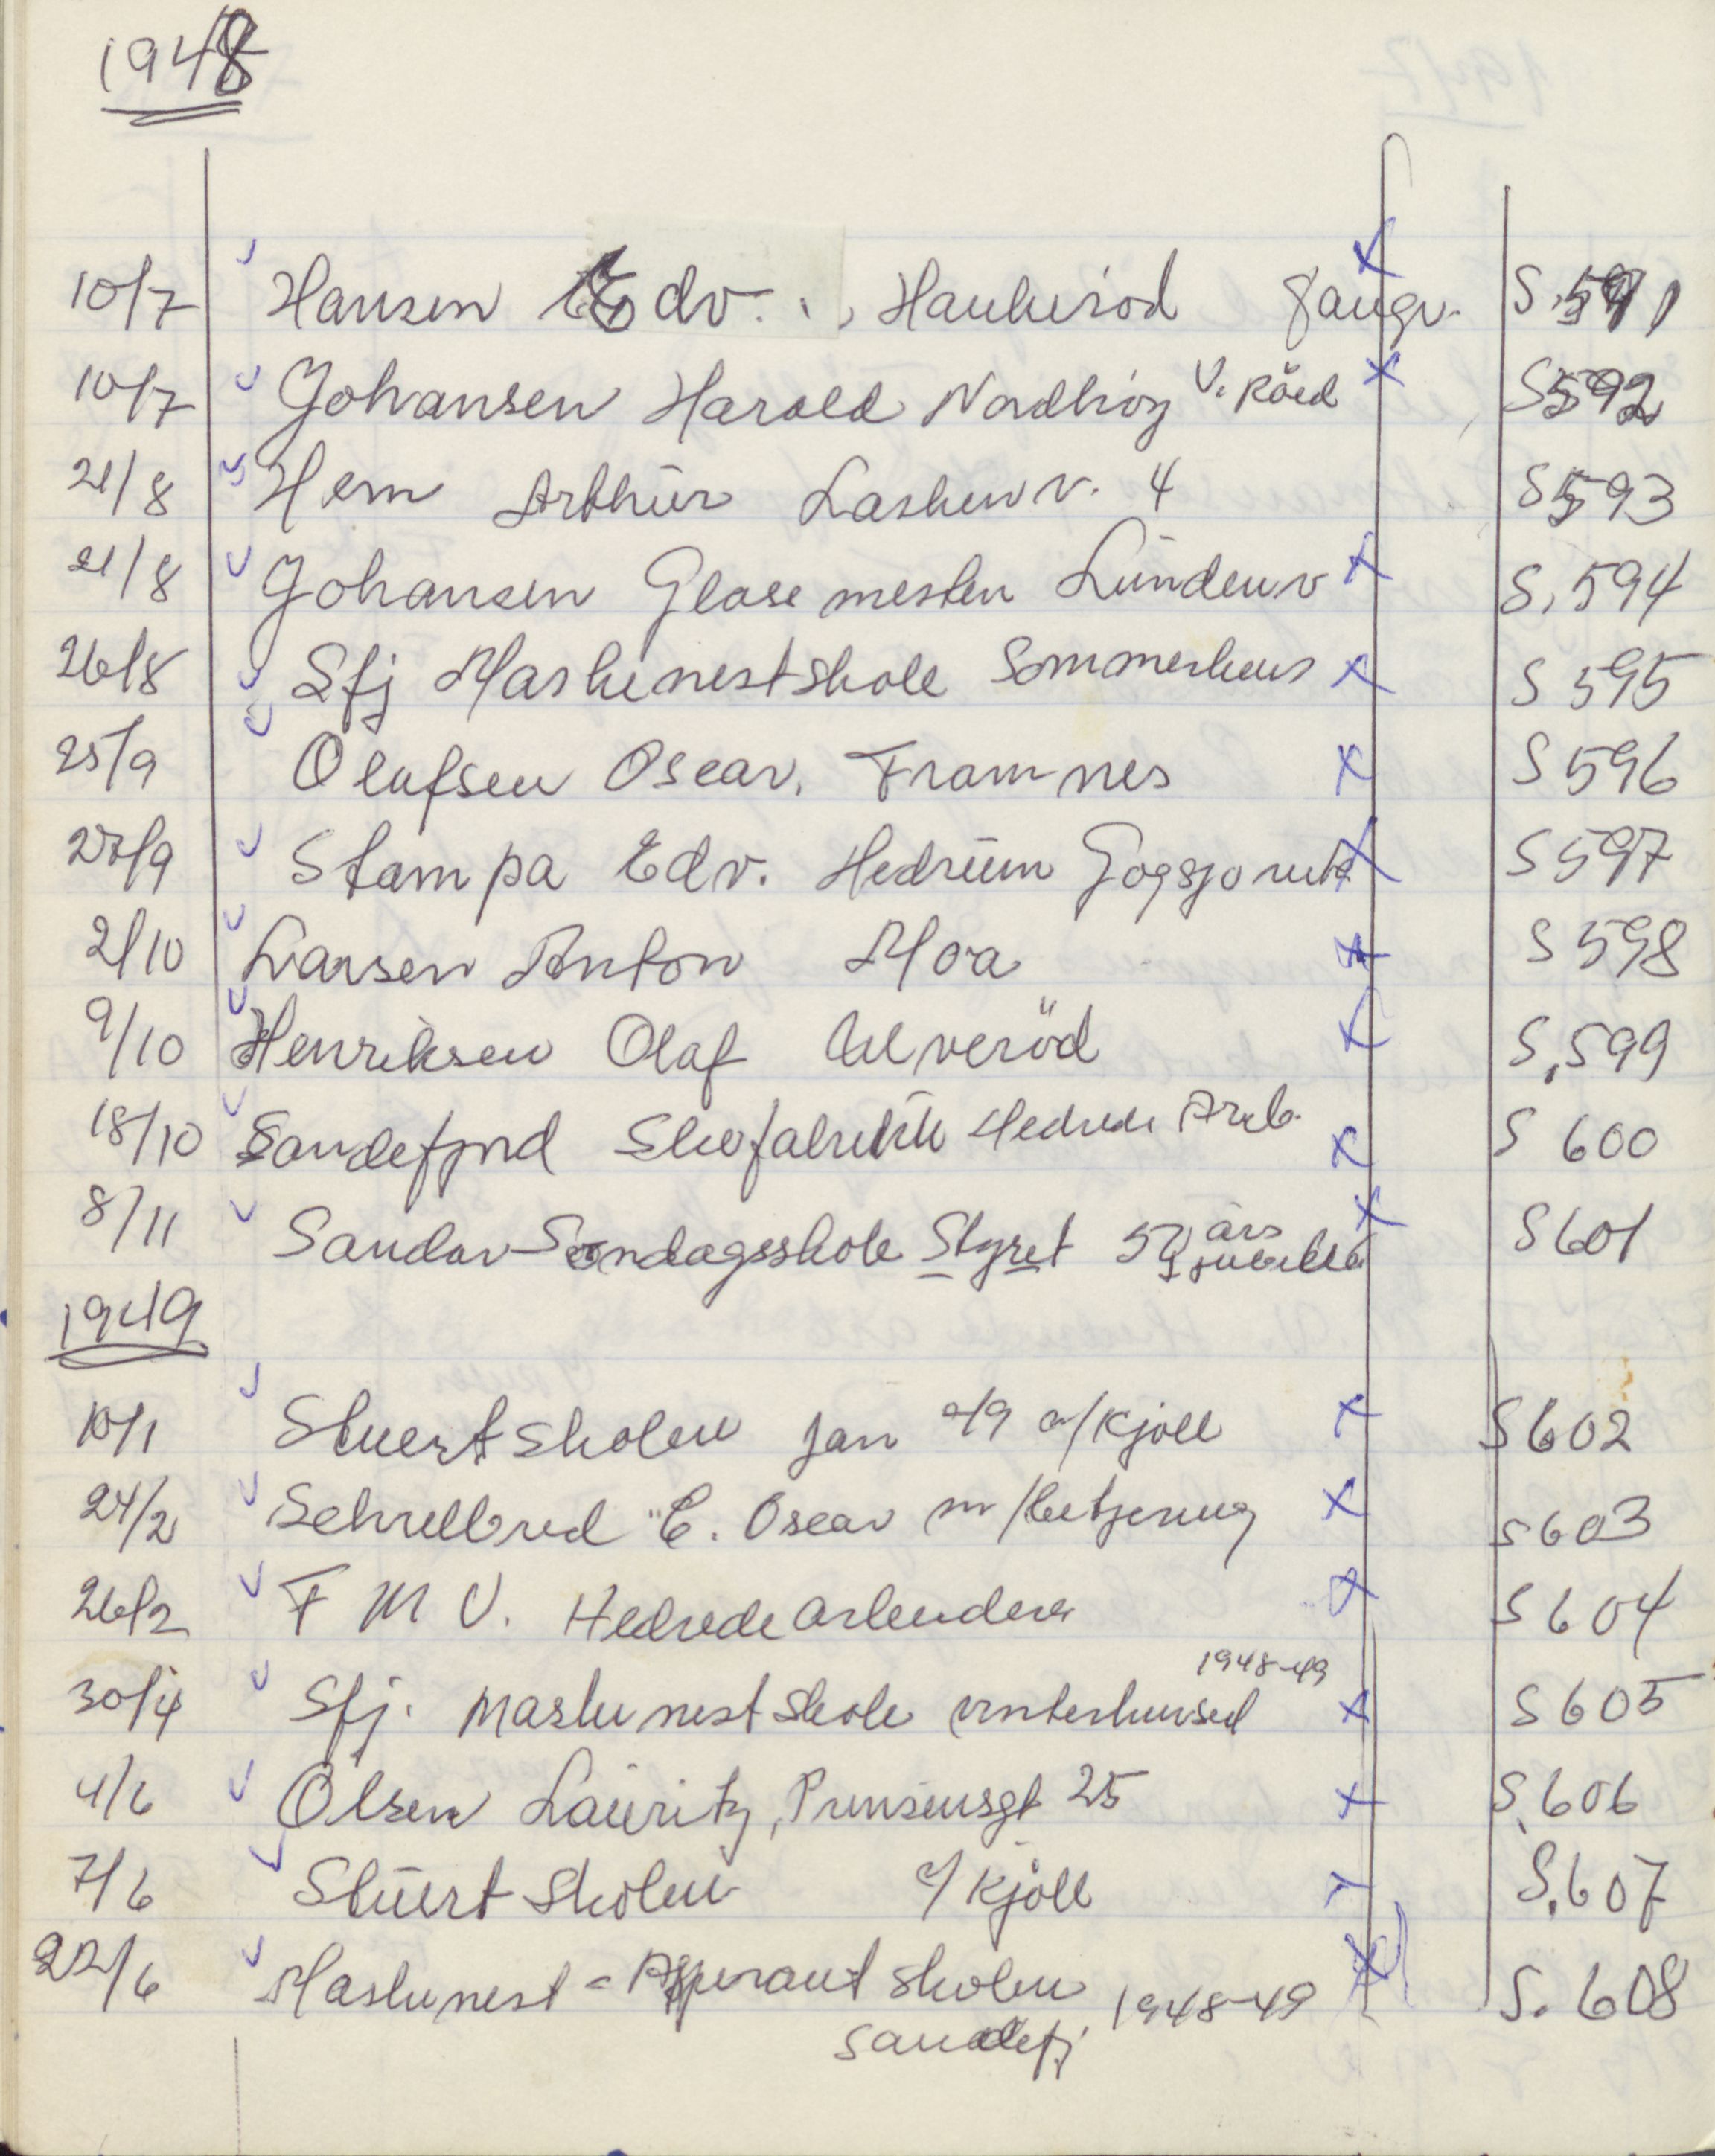 1948
10/7 Hansen Edv. , Haukeröd Jaugv. S. 591
10/7 Johansen Harald Nordhög V. Råed S 592
21/8 Hem Arthur Laskenv. 4 S 593
21/8 Johansen Glasemester Lundenv S. 594
26/8 Sfj Maskinestskole Sommerkurs S 595
25/9 Olafsen Oscar. Framnes S 596
27/9 Stampa Edv. Hedrum S 597
2/10 Larsen Anton Moa S 598
9/10 Henriksen Olaf Ulveröd S. 599
18/10 Sandefjord Skofabrikk Hedrede Arb. S 600
8/11 Sandar Søndagsskole Styret 50 års jubileum S 601
1949
10/1 Stuertskolen Jan 49 m/Kjöll S 602
24/2 Schrellbred E. Oscar m/ S 603
26/2 F M V. Hedrede arbeidere S 604
30/4 Sfj. Maskinestskole vinterkurset 1948-49 S 605
4/6 Olsen Lauritz, Prinsensgt 25 S. 606
7/6 Stuertskolen v/Kjöll S. 607
22/6 Maskinest = Aspirantskolen 1948-49 S. 608
Sandefj.